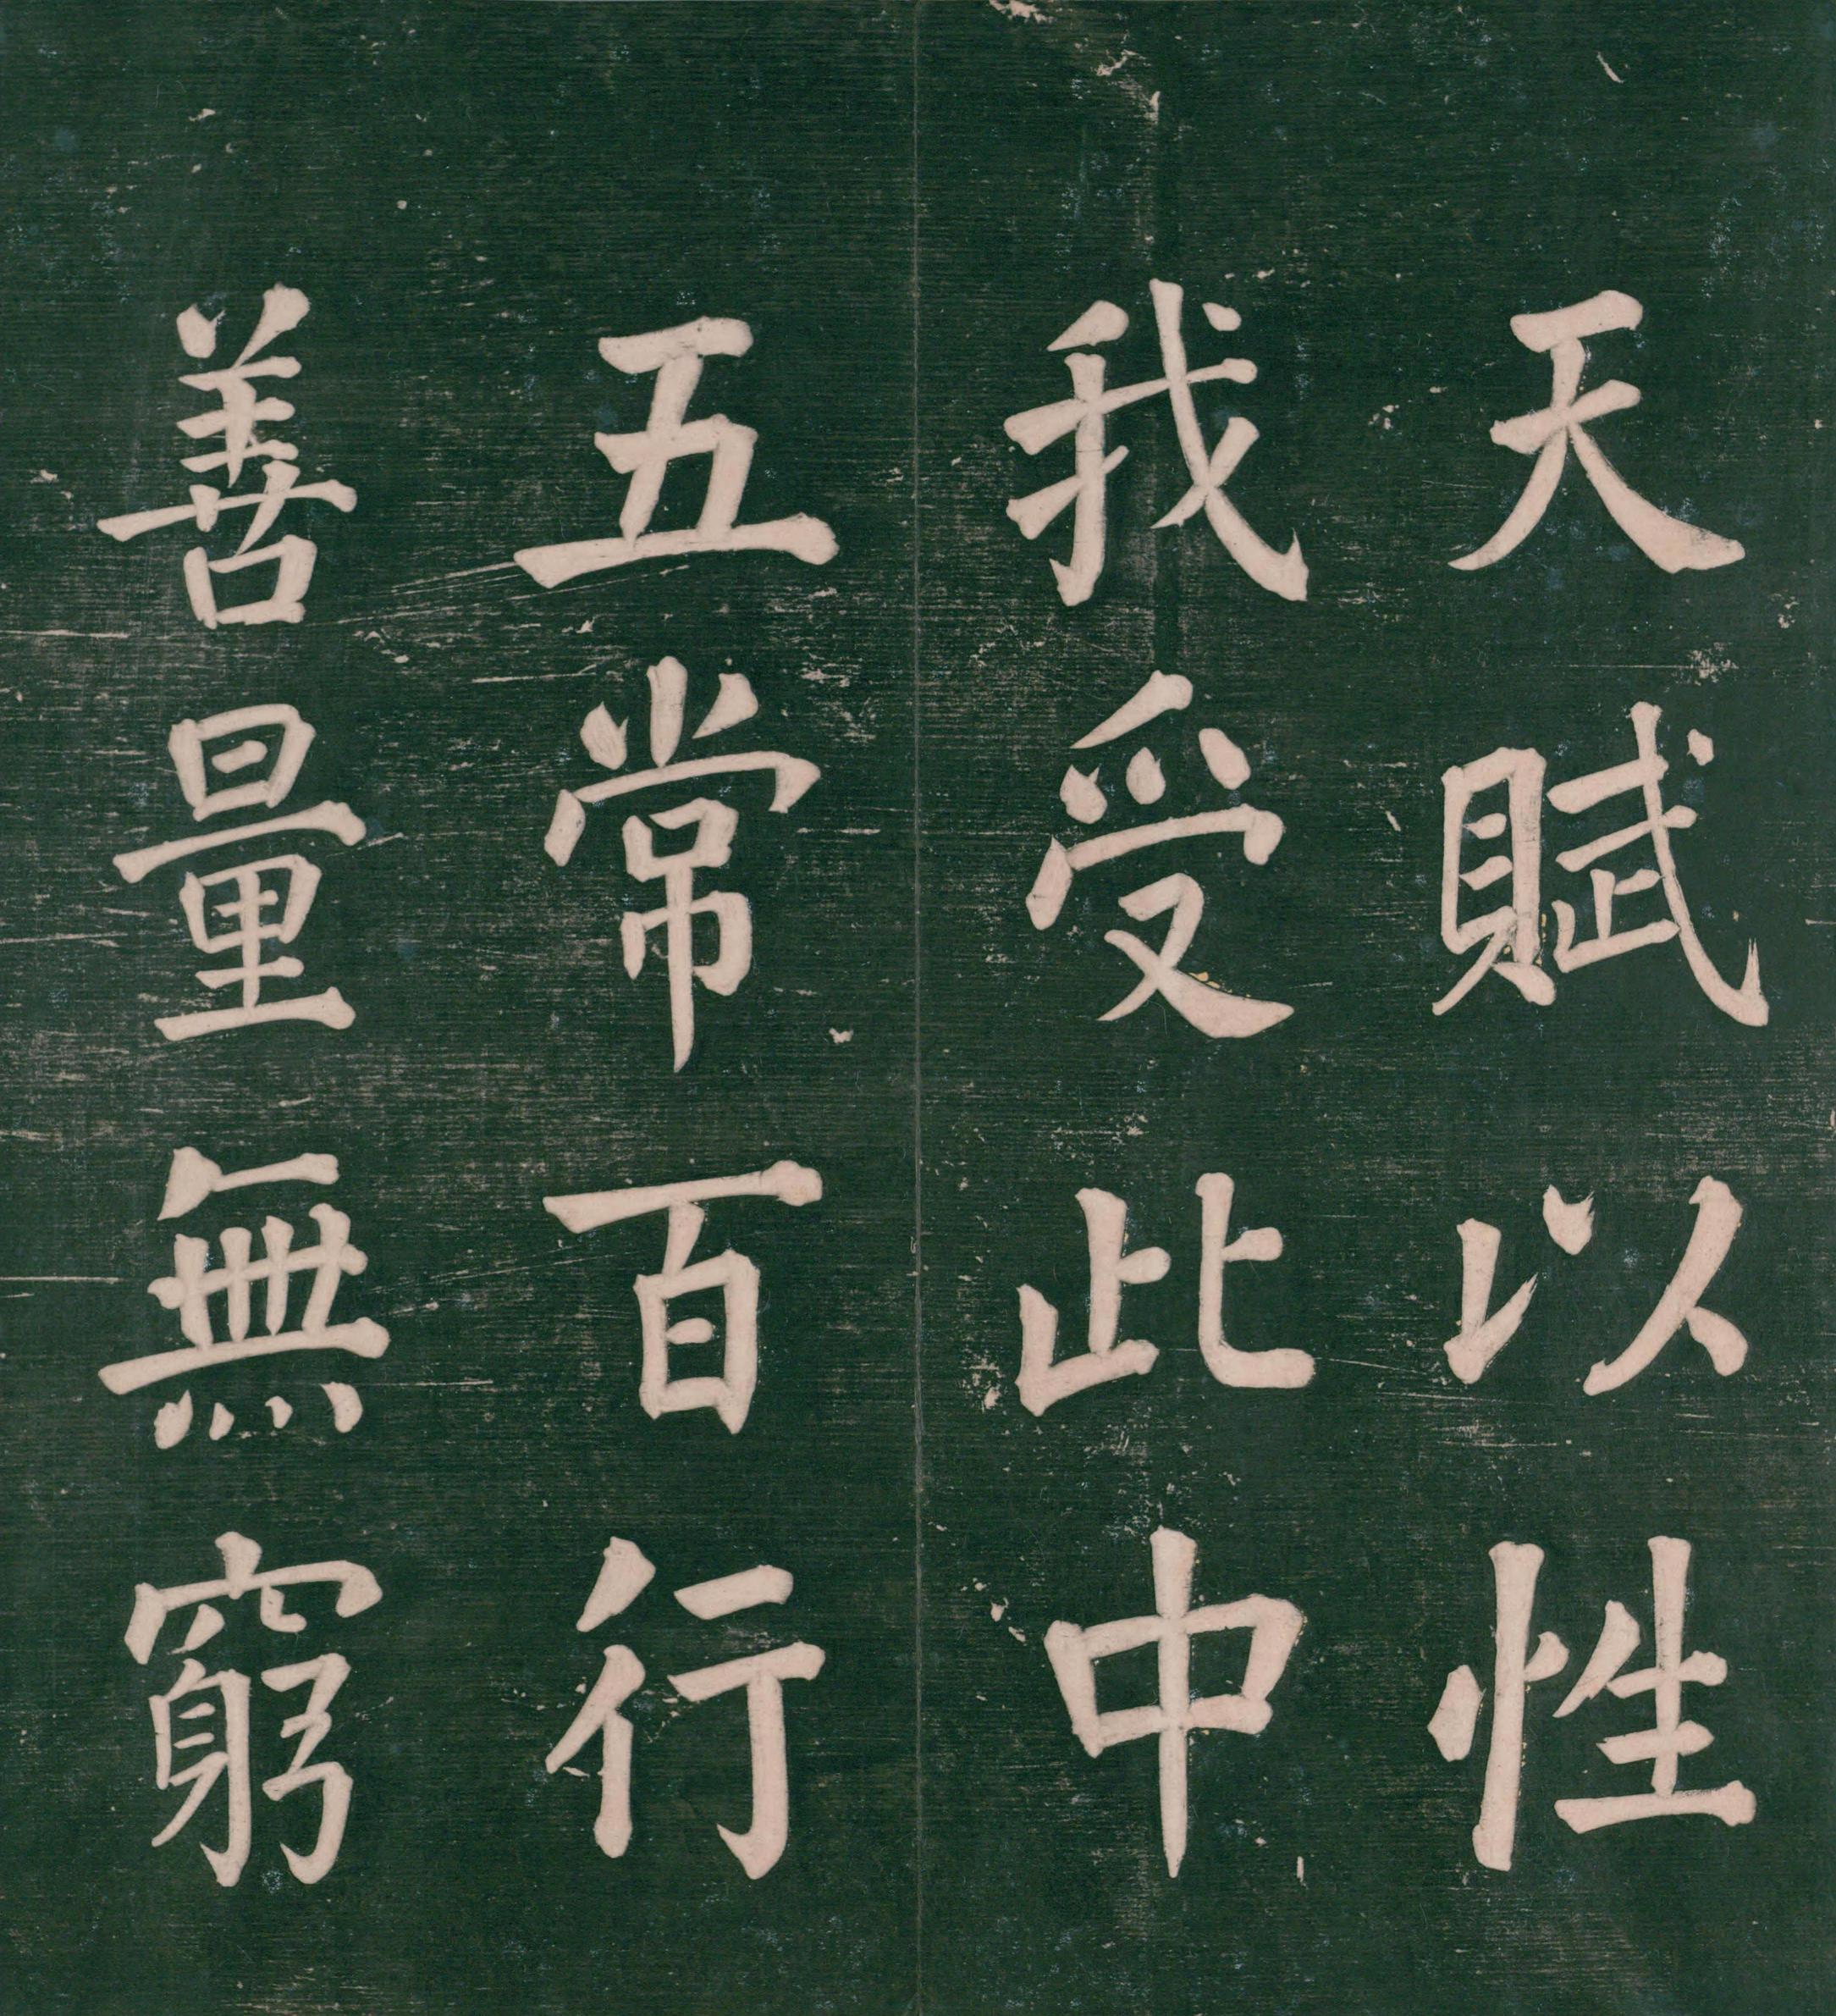 天賦以性
我受此中
五常百行
善量無窮